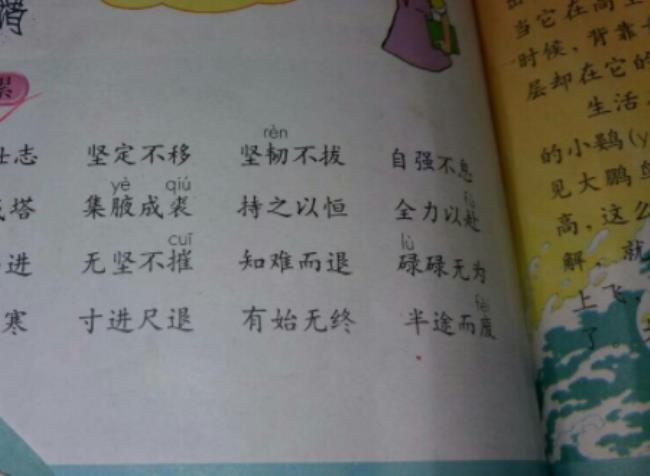 rèn
壮志 坚定不移 坚韧不拔 自强不息
yè qiú fù
成塔 集腋成裘 持之以恒 全力以赴
cuī lù
进 无坚不摧 知难而退 碌碌无为
fèi
寒 寸进尺退 有始无终 半途而废
当它在高空
时候，背靠
层却在它的
生活
的小鷃(y
见大鹏鸟
高，这么
解，就
上飞，
了。